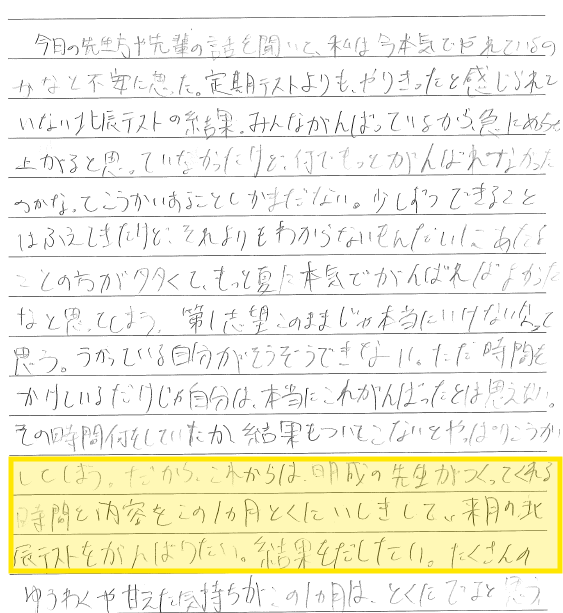 今日の先生方や先輩の話を聞いて、私は今本気でやれているの
かなと不安に思った。定期テストよりも、やりきったと感じられて
いない北辰テストの結果。みんながんばっているから、急にめちゃ
上がると思っていなかったけど、何でもっとがんばれなかった
のかなってこうかいすることしかまだない。少しずつできること
はふえてきたけど、それよりもわからないもんだいにあたる
ことの方が多くて、もっと夏に本気でがんばればよかった
なと思ってしまう。第1志望このままじゃ本当にいけないなって
思う。うかっている自分がそうぞうできない。ただ時間を
かけているだけじゃ自分は、本当にこれがんばったとは思えない。
その時間何をしていたか、結果もついてこないとやっぱりこうかい
してしまう。だから、これからは、明成の先生がつくってくれる
時間と内容をこの1か月とくにいしきして、来月の北
辰テストをがんばりたい。結果をだしたい。たくさんの
ゆうわくや甘えた気持ちがこの1か月は、とくにでると思う。